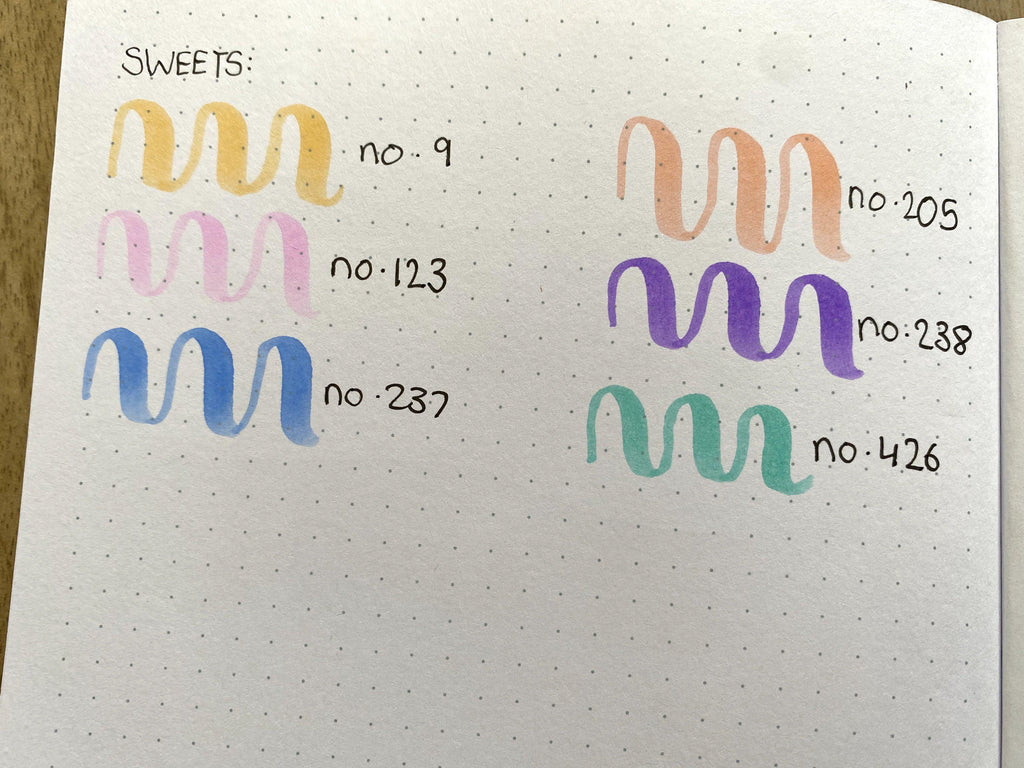 SWEETS:
no. 9
no. 123
no. 237
no. 205
no. 238
no. 426